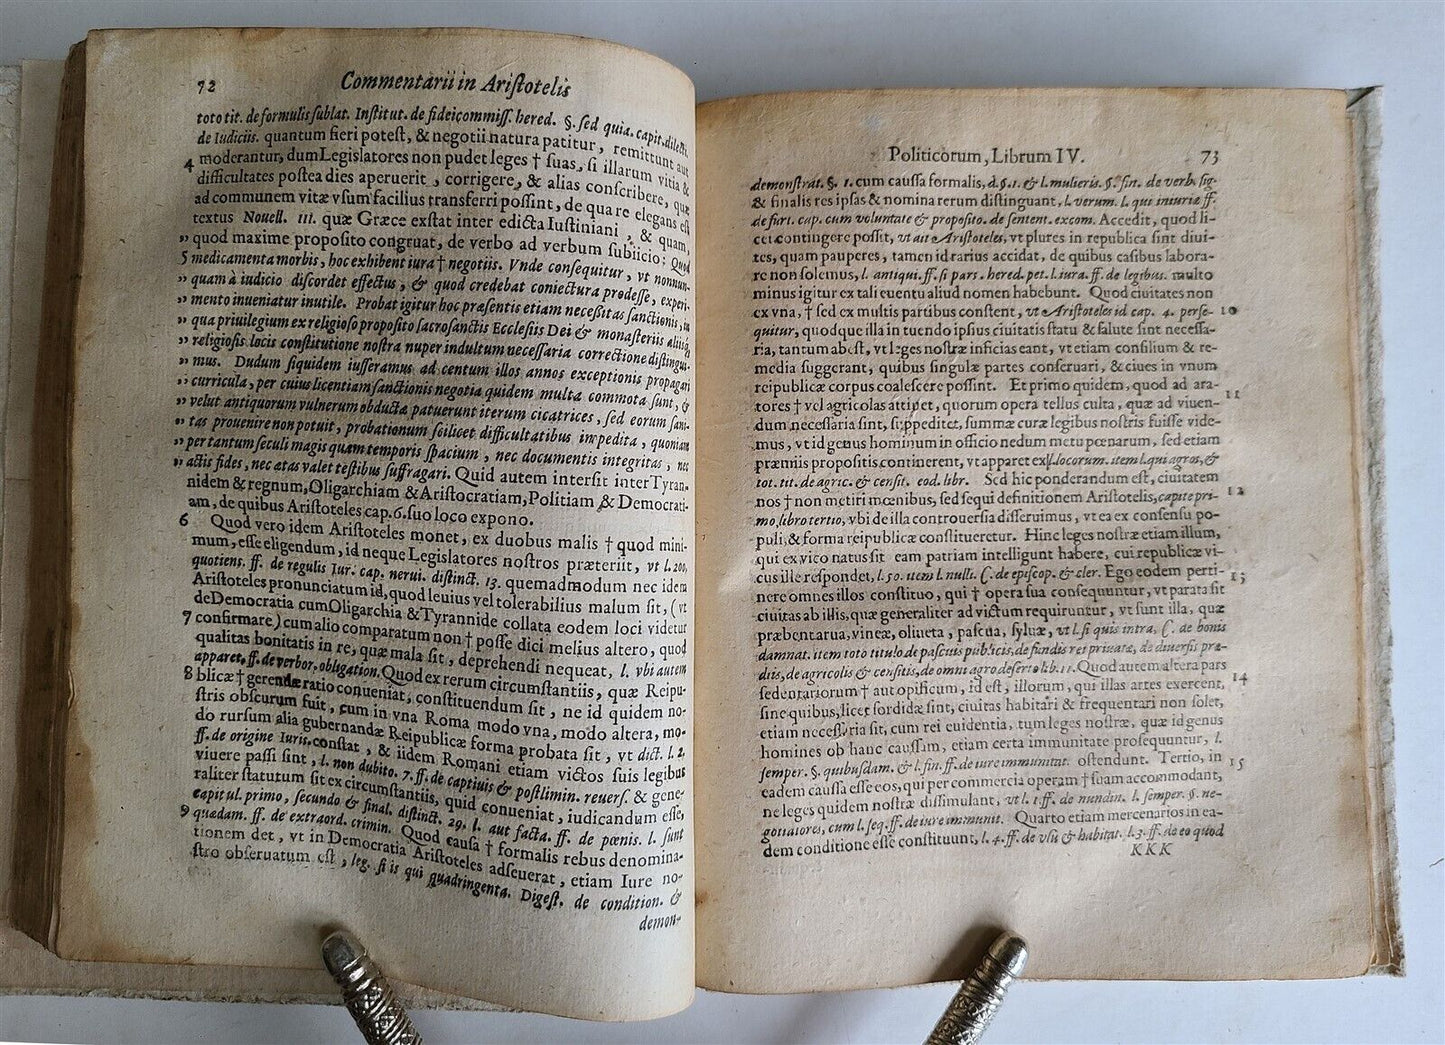 72 Commentarii in Aristotelis
toto tit. de formulis sublat. Institut. de fideicommiss. hered. §. sed quia. capit. dilecti.
de Iudiciis. quantum fieri potest, & negotii natura patitur, remittunt aut
4 moderantur, dum Legislatores non pudet leges † suas, si illarum vitia &
difficultates postea dies aperuerit, corrigere, & alias conscribere, quæ
ad communem vitæ vsum facilius transferri possint, de qua re elegans est
textus Nouell. 111. quæ Græce exstat inter edicta Iustiniani, & quam,
„ quod maxime proposito congruat, de verbo ad verbum subiicio: Quod
5 medicamenta morbis, hoc exhibent iura † negotiis. Vnde consequitur, vt nonnun-
„ quam à iudicio discordet effectus, & quod credebat coniectura prodesse, experi-
„ mento inueniatur inutile. Probat igitur hoc præsentis etiam necessitas sanctionis, in
„ qua priuilegium ex religioso proposito sacrosanctis Ecclesiis Dei & monasteriis aliisq;
„ religiosis locis constitutione nostra nuper indultum necessaria correctione distingui-
„ mus. Dudum siquidem iusseramus ad centum illos annos exceptionis propagari
„ curricula, per cuius licentiam sanctionis negotia quidem multa commota sunt, &
„ velut antiquorum vulnerum obducta patuerunt iterum cicatrices, sed eorum sani-
„ tas prouenire non potuit, probationum scilicet difficultatibus impedita, quoniam
„ per tantum seculi magis quam temporis spacium, nec documentis integritas, nec
„ actis fides, nec ætas valet testibus suffragari. Quid autem intersit inter Tyran-
nidem & regnum, Oligarchiam & Aristocratiam, Politiam & Democrati-
am, de quibus Aristoteles cap. 6. suo loco expono.
6 Quod vero idem Aristoteles monet, ex duobus malis † quod mini-
mum, esse eligendum, id neque Legislatores nostros præteriit, vt l. 200.
quotiens. ff. de regulis Iur. cap. nerui. distinct. 13. quemadmodum nec idem
Aristoteles pronunciatum id, quod leuius vel tolerabilius malum sit, (vt
de Democratia cum Oligarchia & Tyrannide collata eodem loci videtur
7 confirmare) cum alio comparatum non † posse dici melius altero, quod
qualitas bonitatis in re, quæ mala sit, deprehendi nequeat, l. vbi autem
apparet. ff. de verbor. obligation. Quod ex rerum circumstantiis, quæ Reipu-
8 blicæ † gerendæ ratio conueniat, constituendum sit, ne id quidem no-
stris obscurum fuit, cum in vna Roma modo vna, modo altera, mo-
do rursum alia gubernandæ Reipublicæ forma probata sit, vt dict. l. 2.
ff. de origine Iuris. constat, & iidem Romani etiam victos suis legibus
viuere passi sint, l. non dubito. 7. ff. de captiuis & postlimin. reuers. & gene-
raliter statutum sit ex circumstantiis, quid conueniat, iudicandum esse,
capitul. primo, secundo & final. distinct. 29. l. aut facta. ff. de pœnis. l. sunt
9 quædam. ff. de extraord. crimin. Quod causa † formalis rebus denomina-
tionem det, vt in Democratia Aristoteles adseuerat, etiam Iure no-
stro obseruatum est, leg. si is qui quadringenta. Digest. de condition. &
demon-
Politicorum, Librum IV. 73
demonstrat. §. 1. cum caussa formalis, d. §. 1. & l. mulieris. §. fin. de verb. sig.
& finalis res ipsas & nomina rerum distinguant, l. verum. l. qui iniuriæ ff.
de furt. cap. cum voluntate & proposito. de sentent. excom. Accedit, quod li-
cet contingere possit, vt ait Aristoteles, vt plures in republica sint diui-
tes, quam pauperes, tamen id rarius accidat, de quibus casibus labora-
re non solemus, l. antiqui. ff. si pars. hered. pet. l. iura. ff. de legibus. multo
minus igitur ex tali euentu aliud nomen habebunt. Quod ciuitates non
ex vna, † sed ex multis partibus constent, vt Aristoteles id cap. 4. perse- 10
quitur, quodque illa in tuendo ipsius ciuitatis statu & salute sint necessa-
ria, tantum abest, vt leges nostræ inficias eant, vt etiam consilium & re-
media suggerant, quibus singulæ partes conseruari, & ciues in vnum
reipublicæ corpus coalescere possint. Et primo quidem, quod ad ara-
tores † vel agricolas attinet, quorum opera tellus culta, quæ ad viuen- 11
dum necessaria sint, suppeditet, summæ curæ legibus nostris fuisse vide-
mus, vt id genus hominum in officio nedum metu pœnarum, sed etiam
præmiis propositis contineren, vt apparet ex l. locorum. item l. qui agros, &
tot. tit. de agric. & censit. eod. libr. Sed hic ponderandum est, ciuitatem
nos † non metiri mœnibus, sed sequi definitionem Aristotelis, capite pri- 12
mo, libro tertio, vbi de illa controuersia disseruimus, vt ea ex consensu po-
puli, & forma reipublicæ constitueretur. Hinc leges nostræ etiam illum,
qui ex vico natus sit eam patriam intelligunt habere, cui reipublicæ vi-
cus ille respondet, l. 50. item l. nulli. C. de episcop. & cler. Ego eodem perti- 13
nere omnes illos constituo, qui † opera sua consequuntur, vt parata sit
ciuitas ab illis, quæ generaliter ad victum requiruntur, vt sunt illa, quæ
præbent arua, vineæ, oliueta, pascua, syluæ, vt l. si quis intra, C. de bonis
damnat. item toto titulo de pascuis publicis, de fundis rei priuatæ, de diuersis præ-
diis, de agricolis & censitis, de omni agro deserto lib. 11. Quod autem altera pars
sedentariorum † aut opificum, id est, illorum, qui illas artes exercent, 14
sine quibus, licet sordidæ sint, ciuitas habitari & frequentari non solet,
etiam necessaria sit, cum rei euidentia, tum leges nostræ, quæ id genus
homines ob hanc caussam, etiam certa immunitate prosequuntur, l.
semper. §. quibusdam. & l. fin. ff. de iure immunitat. ostendunt. Tertio, in 15
eadem caussa esse eos, qui per commercia operam † suam accommodant,
ne leges quidem nostræ dissimulant, vt l. 1. ff. de nundin. l. semper. §. ne-
gotiatores, cum l. seq. ff. de iure immunit. Quarto etiam mercenarios in ea-
dem conditione esse constituunt, l. 4. ff. de vsu & habitat. l. 3. ff. de eo quod
KKK